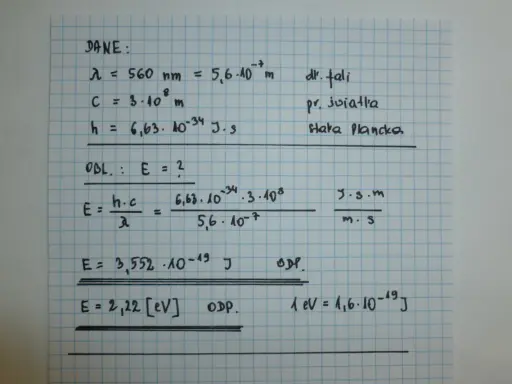 DANE:
λ = 560 nm = 5,6·10⁻⁷ m dł. fali
C = 3·10⁸ m pr. światła
h = 6,63·10⁻³⁴ J·s stała Plancka
OBL.: E = ?
E = h·c / λ = 6,63·10⁻³⁴·3·10⁸ / 5,6·10⁻⁷ J·s·m / m·s
E = 3,552·10⁻¹⁹ J ODP.
E = 2,22 [eV] ODP. 1 eV = 1,6·10⁻¹⁹ J